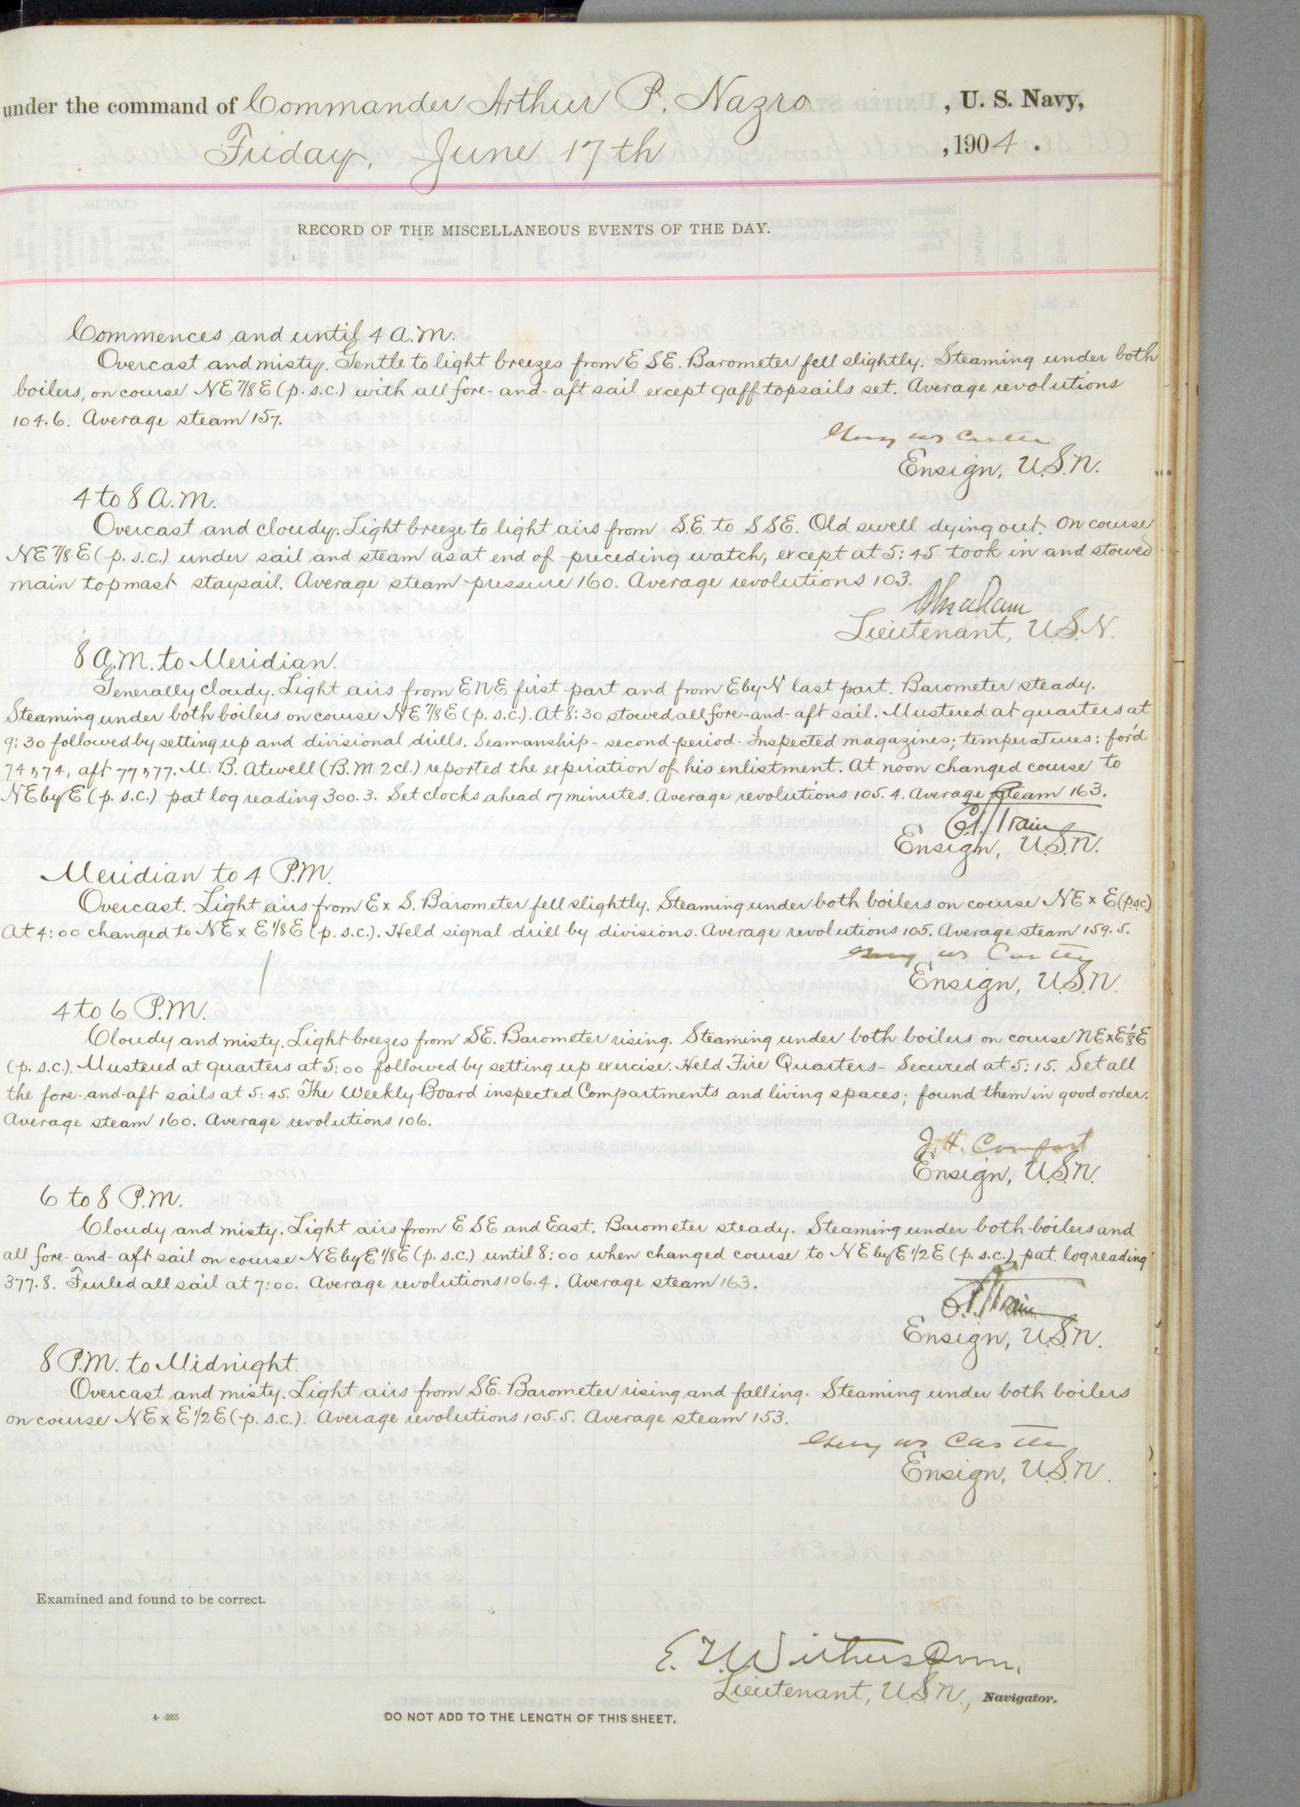 under the command of Commander Arthur P. Nazro, U. S. Navy,
Friday, June 17th, 1904.
RECORD OF THE MISCELLANEOUS EVENTS OF THE DAY.
Commences and until 4 A.M.
Overcast and misty. Gentle to light breezes from ESE. Barometer fell slightly. Steaming under both
boilers, on course NE 7/8 E (p.s.c.) with all fore-and-aft sail except gaff topsails set. Average revolutions
104.6. Average steam 157.
Ensign, U.S.N.
4 to 8 A.M.
Overcast and cloudy. Light breeze to light airs from S.E. to SSE. Old swell dying out. On course
NE 7/8 E (p.s.c.) under sail and steam as at end of preceding watch, except at 5:45 took in and stowed
main topmast staysail. Average steam pressure 160. Average revolutions 103.
Lieutenant, U.S.N.
8 A.M. to Meridian.
Generally cloudy. Light airs from ENE first part and from E by N last part. Barometer steady.
Steaming under both boilers on course NE 7/8 E (p.s.c.). At 8:30 stowed all fore-and-aft sail. Mustered at quarters at
9:30 followed by setting up and divisional drills. Seamanship - second period. Inspected magazines; temperatures: for'd
74, 74, aft 77, 77. M. B. Atwell (B.M. 2cl.) reported the expiration of his enlistment. At noon changed course to
NE by E (p.s.c.) pat log reading 300.3. Set clocks ahead 17 minutes. Average revolutions 105.4. Average steam 163.
Ensign, U.S.N.
Meridian to 4 P.M.
Overcast. Light airs from E x S. Barometer fell slightly. Steaming under both boilers on course NE x E (p.s.c.)
At 4:00 changed to NE x E 1/8 E (p.s.c.). Held signal drill by divisions. Average revolutions 105. Average steam 159.5.
Ensign, U.S.N.
4 to 6 P.M.
Cloudy and misty. Light breezes from SE. Barometer rising. Steaming under both boilers on course NE x E 1/8 E
(p.s.c.). Mustered at quarters at 5:00 followed by setting up exercise. Held Fire Quarters - Secured at 5:15. Set all
the fore-and-aft sails at 5:45. The Weekly Board inspected Compartments and living spaces; found them in good order.
Average steam 160. Average revolutions 106.
J. H. Comfort
Ensign, U.S.N.
6 to 8 P.M.
Cloudy and misty. Light airs from ESE and East. Barometer steady. Steaming under both boilers and
all fore-and-aft sail on course NE by E 1/8 E (p.s.c.) until 8:00 when changed course to NE by E 1/2 E (p.s.c.) pat. log reading
377.8. Furled all sail at 7:00. Average revolutions 106.4. Average steam 163.
Ensign, U.S.N.
8 P.M. to Midnight.
Overcast and misty. Light airs from SE. Barometer rising and falling. Steaming under both boilers
on course NE x E 1/2 E (p.s.c.). Average revolutions 105.5. Average steam 153.
Ensign, U.S.N.
Examined and found to be correct.
E. T. Witherspoon,
Lieutenant, U.S.N., Navigator.
4--265
DO NOT ADD TO THE LENGTH OF THIS SHEET.